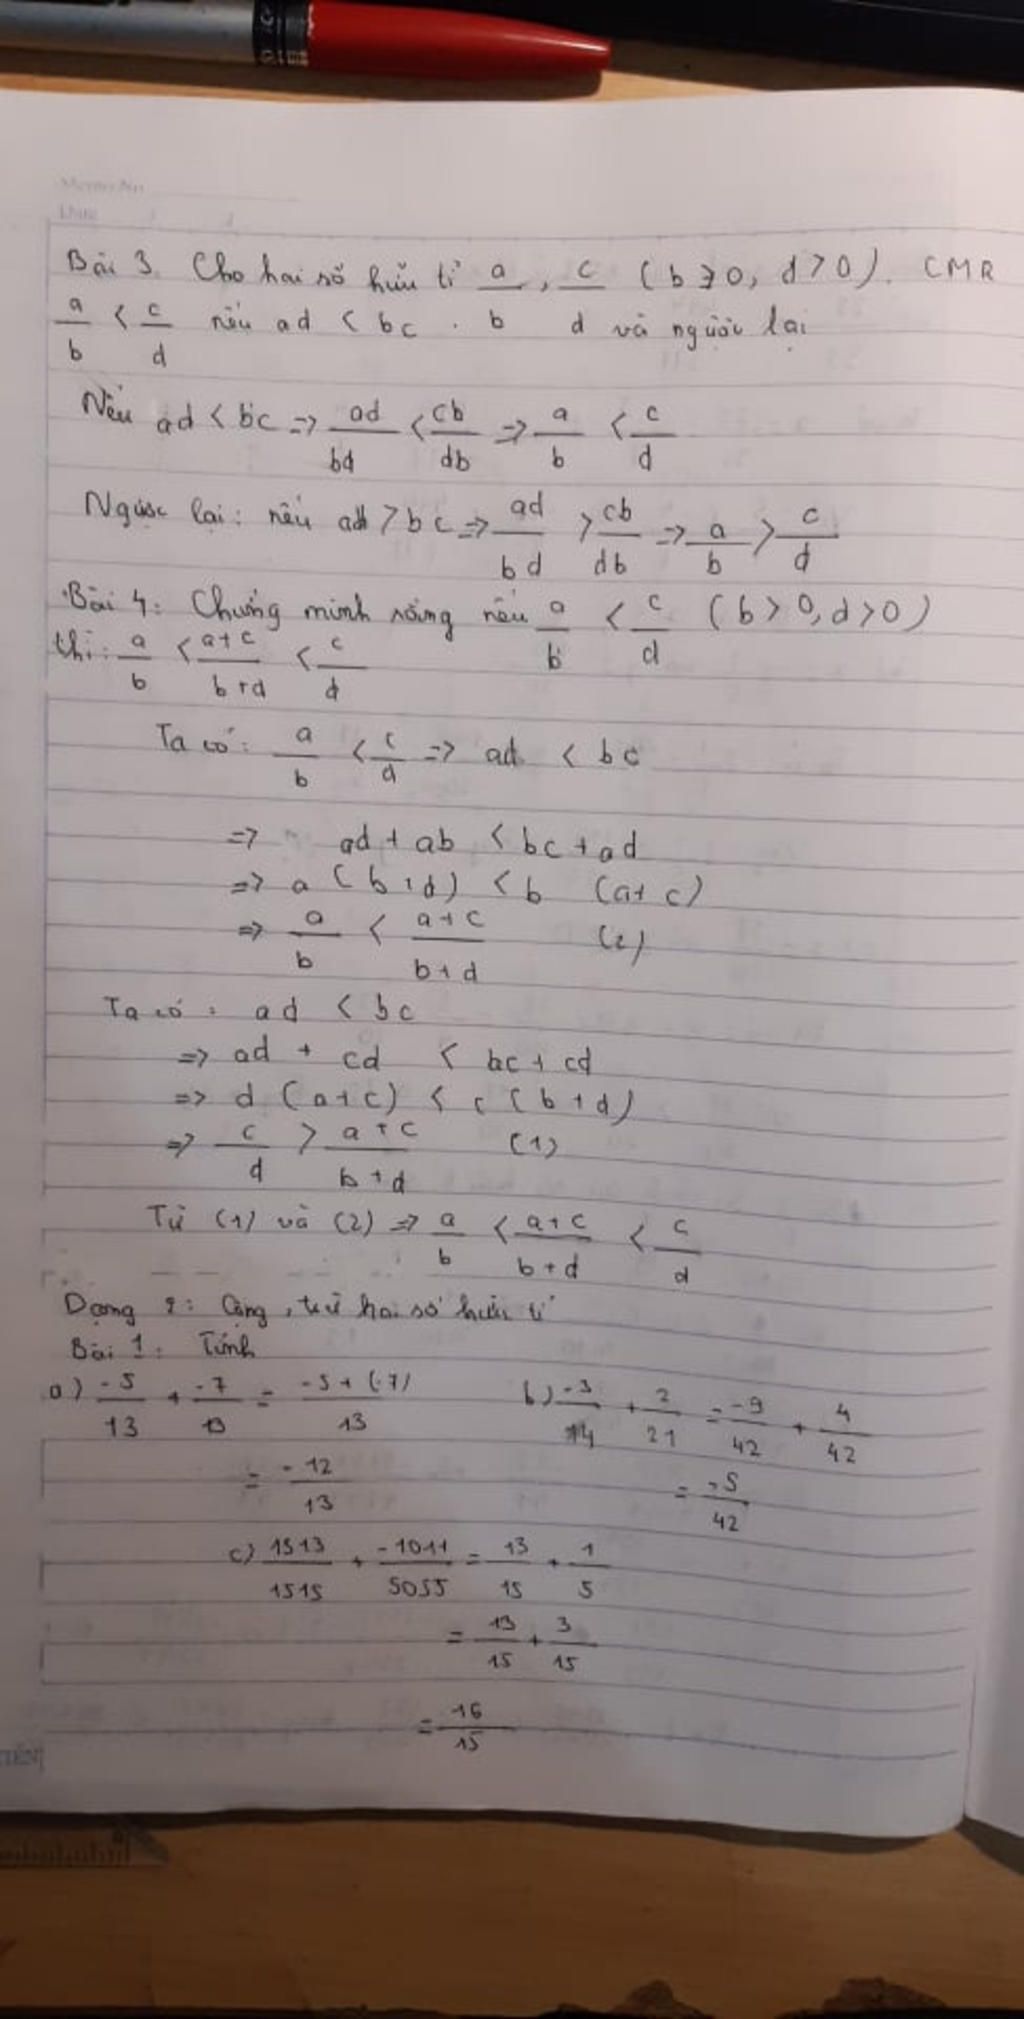 Memo No.
Date / /
Bài 3. Cho hai số hữu tỉ a/b, c/d (b > 0, d > 0). CMR
a/b < c/d nếu ad < bc. và ngược lại
Nếu ad < bc => ad/bd < cb/db => a/b < c/d
Ngược lại: nếu ad > bc => ad/bd > cb/db => a/b > c/d
Bài 4: Chứng minh rằng nếu a/b < c/d (b > 0, d > 0)
thì: a/b < a+c/b+d < c/d
Ta có: a/b < c/d => ad < bc
=> ad + ab < bc + ad
=> a (b+d) < b (a+c)
=> a/b < a+c/b+d (2)
Ta có: ad < bc
=> ad + cd < bc + cd
=> d (a+c) < c (b+d)
=> c/d > a+c/b+d (1)
Từ (1) và (2) => a/b < a+c/b+d < c/d
Dạng 2: Cộng, trừ hai số hữu tỉ
Bài 1: Tính
a) -5/13 + -7/13 = -5+(-7)/13 b) -3/14 + 2/21 = -9/42 + 4/42
= -12/13 = -5/42
c) 1313/1515 + -1011/5055 = 13/15 + 1/5
= 13/15 + 3/15
= 16/15